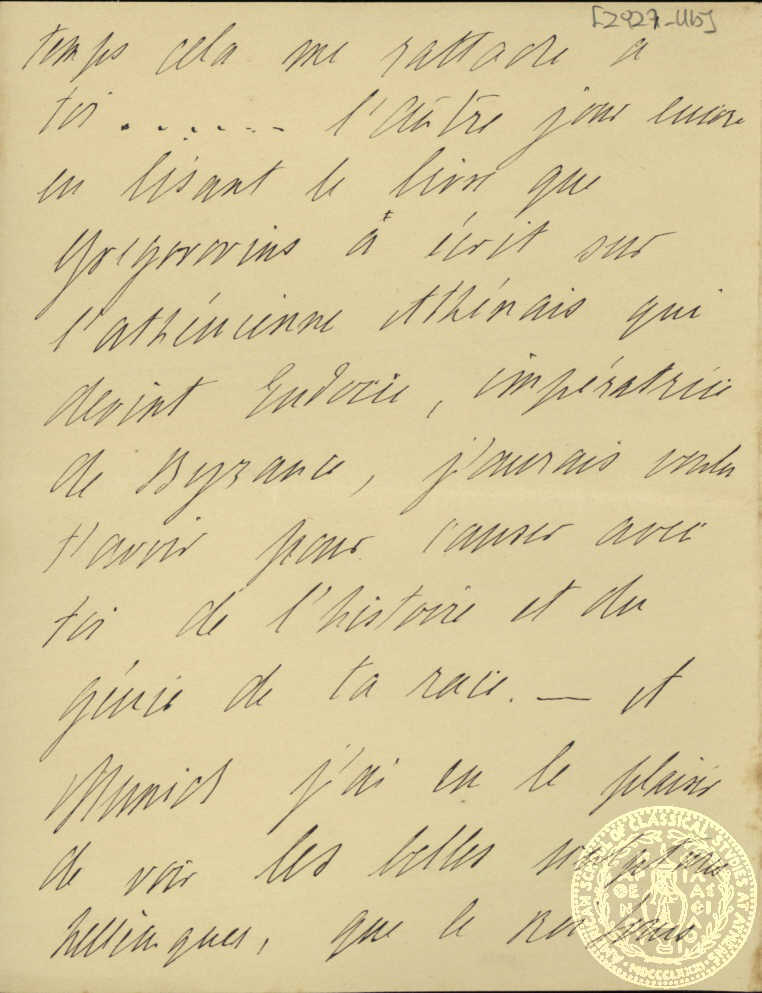 [2927-Ub]
temps cela me rattache à
toi ....... l'autre jour encore
en lisant le livre que
Gregorovius à écrit sur
l'athénienne Athénais qui
devint Eudocie, impératrice
de Byzance, j'aurais voulu
t'avoir pour causer avec
toi de l'histoire et du
génie de ta race. — et
Munich j'ai eu le plaisir
de voir les belles sculptures
helléniques, que le roi Louis
AMERICAN SCHOOL OF CLASSICAL STUDIES AT ATHENS
MDCCCLXXXI